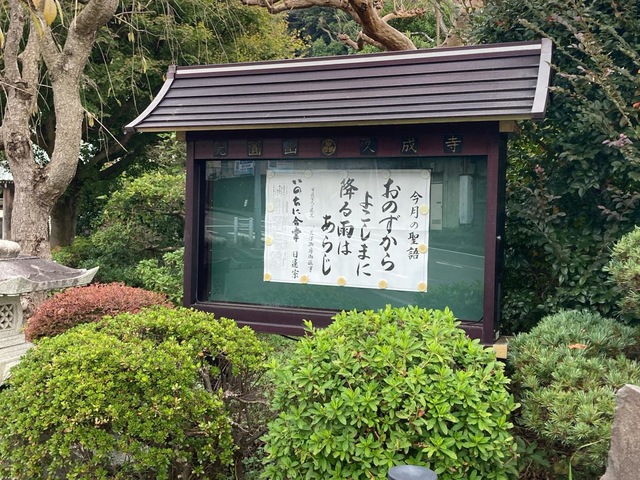 光圓山 久成寺
今月の聖語
おのずから
よこしまに
降る雨は
あらじ
いのちに合掌 日蓮宗